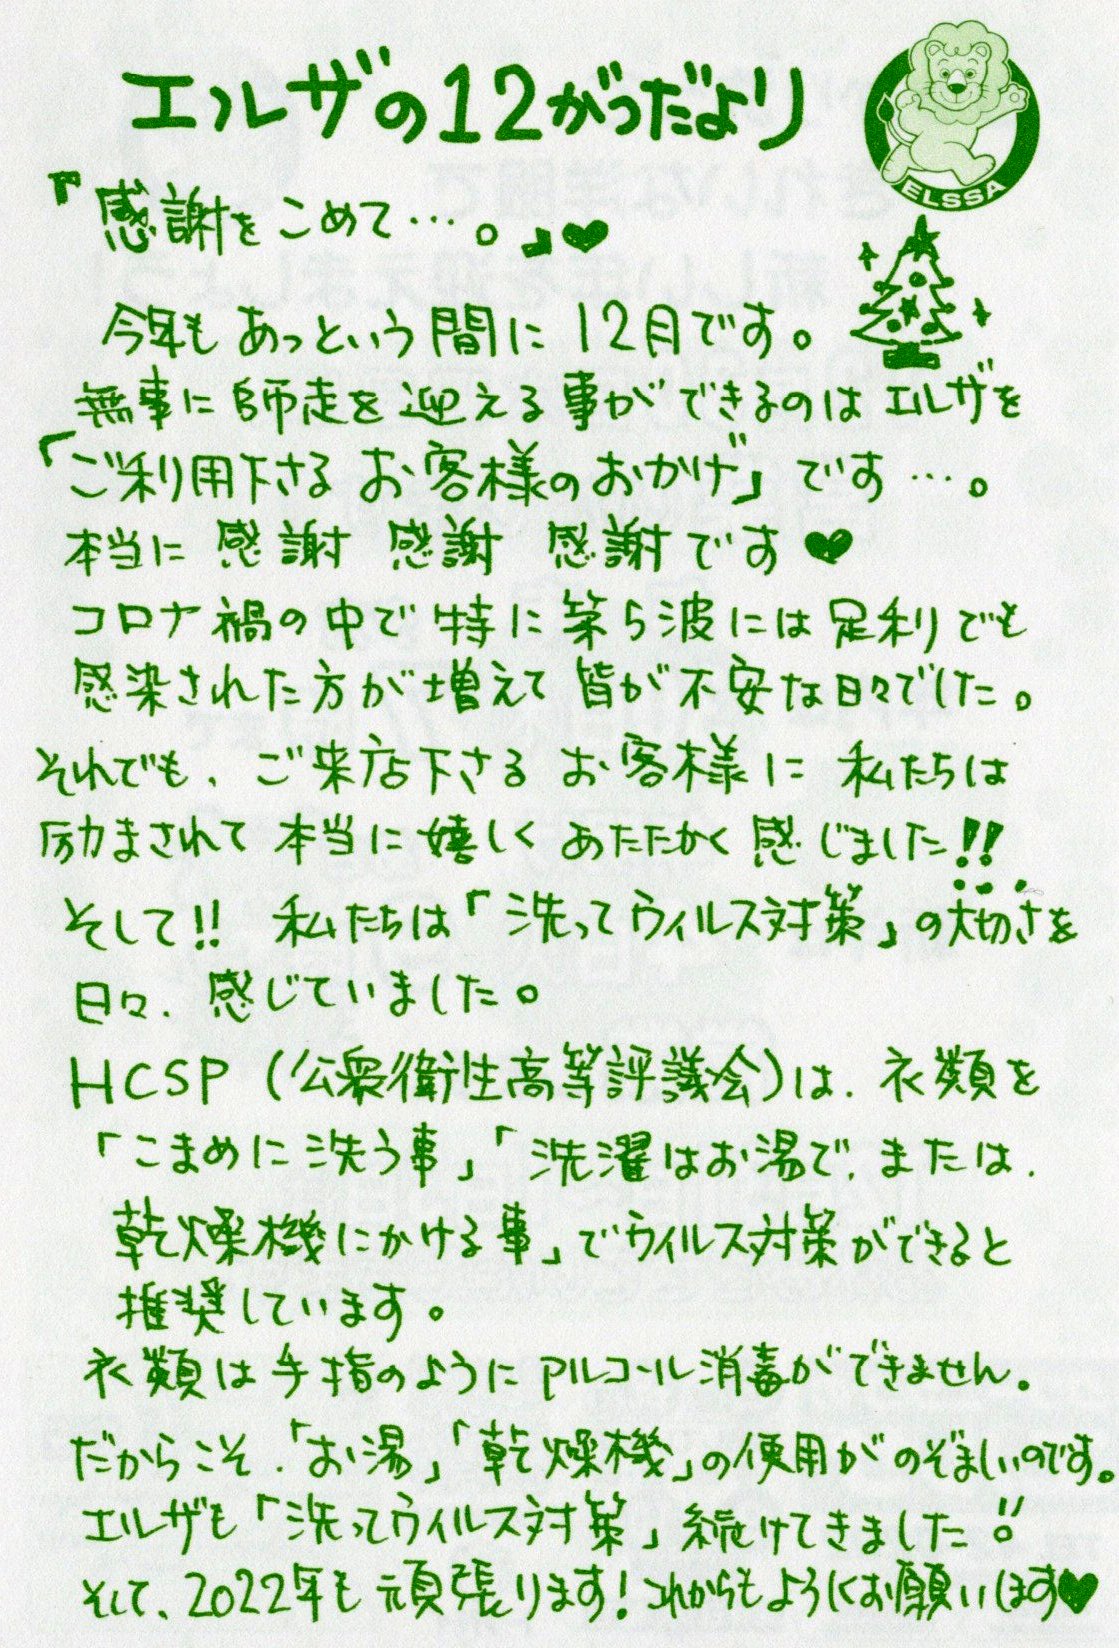 エルザの12がつだより
ELSSA
『感謝をこめて…。』♥
今年もあっという間に12月です。
無事に師走を迎える事ができるのはエルザを
「ご利用下さるお客様のおかげ」です…。
本当に感謝 感謝 感謝です♥
コロナ禍の中で特に第5波には足利でも
感染された方が増えて皆が不安な日々でした。
それでも、ご来店下さるお客様に私たちは
励まされて本当に嬉しくあたたかく感じました!!
そして!! 私たちは「洗ってウィルス対策」の大切さを
日々、感じていました。
HCSP(公衆衛生高等評議会)は、衣類を
「こまめに洗う事」「洗濯はお湯で、または、
乾燥機にかける事」でウィルス対策ができると
推奨しています。
衣類は手指のようにアルコール消毒ができません。
だからこそ、「お湯」「乾燥機」の使用がのぞましいのです。
エルザも「洗ってウィルス対策」続けてきました!!
そして、2022年も頑張ります!これからもよろしくお願いします♥